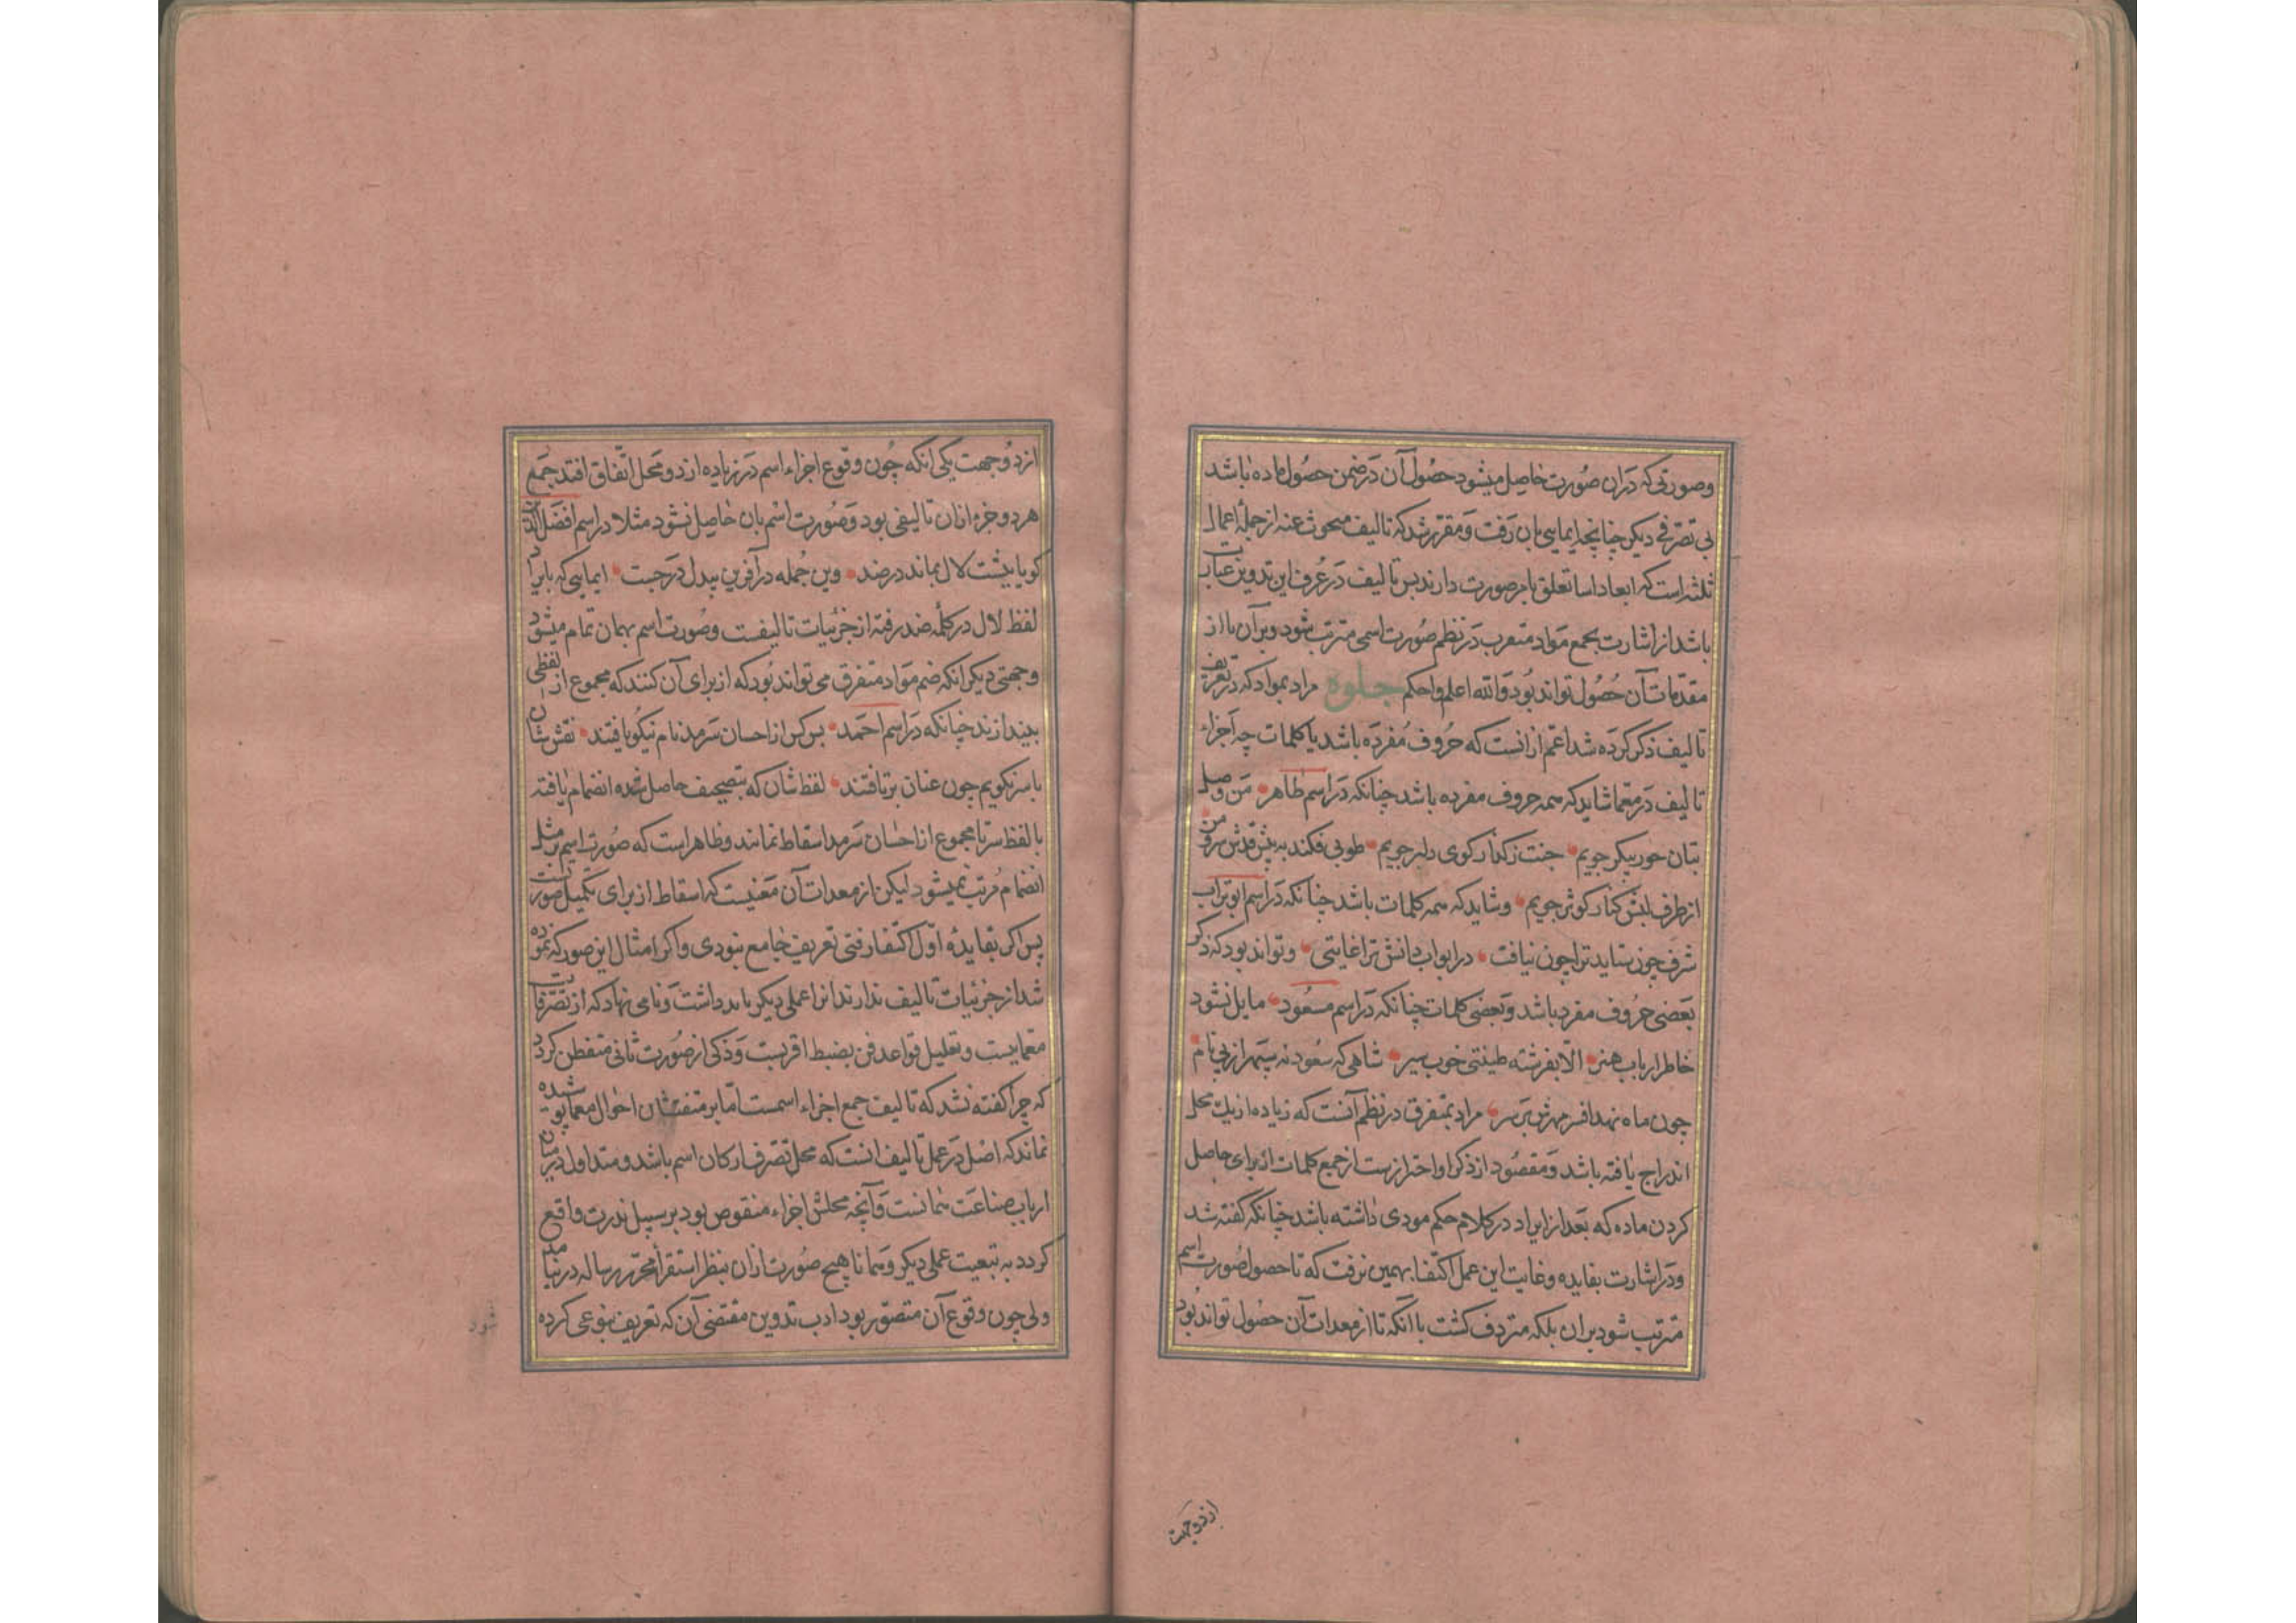 وصورتی که دران صورت حاصل میشود حصول آن در ضمن حصول ماده باشد
بی تصرفی دیکر چنانچه ایمایی بان رفت و مقرر شد که تالیف مبحوث عنه از جملهٔ اعمال
ثلثه است که ابعاد اساتعلق بامر صورت دارند بس تالیف در عرف این تدوین عبارت
باشد از اشارت بجمع مواد متفرب در نظم صورت اسمی مترتب شود و بر آن یا از
مقدمات آن حصول تواند بود والله اعلم واحکم جلوه مراد بمواد که در تعریف
تالیف ذکر کرده شد اعم ازانست که حروف مفرده باشد یا کلمات چه اجزاء
تالیف در معما شاید که همه حروف مفرده باشد چنانکه در اسم طاهر من وصل
بتان حور پیکر جویم جنت ز کنار کوی دلبر جویم طوبی فکند به پیش قدش سرو من
از طرف لبش کنار کوثر جویم وشاید که همه کلمات باشد چنانکه در اسم ابوتراب
شرف چون ستاید ترا چون نیافت در ابواب دانش ترا غایتی وتواند بود که ذکر
بعضی حروف مفرد باشد وبعضی کلمات چنانکه در اسم مسعود مایل نشود
خاطر ارباب هنر الا بفرشته طینتی خوب سیر شاهی که سعود نه سپهر از پی نام
چون ماه نهد افسر مهرش بر سر مراد بمتفرق در نظم آنست که زیاده از یک محل
اندراج یافته باشد ومقصود از ذکر او احترازست از جمع کلمات از برای حاصل
کردن ماده که بعد از ایراد در کلام حکم مودی داشته باشد چنانکه کفته شد
ودر اشارت بفایده وغایت این عمل اکتفا بهمین نرفت که تا حصول صورت اسم
مترتب شود بران بلکه متردف کشت با آنکه تا از معدات آن حصول تواند بود
از دو جهت
از دو جهت یکی انکه چون وقوع اجزاء اسم در زیاده از دو محل اتفاق افتد جمع
هر دو جزء ازان تالیفی بود وصورت اسم بان حاصل نشود مثلا در اسم افضل الدین
کویا بیشت لال بماند در ضد وین جمله در آفرین بیدل درجست ایمایی که بایراد
لفظ لال در کلمه ضد رفته از جزئیات تالیفست وصورت اسم بهمان تمام میشود
وجهتی دیکر انکه ضم مواد متفرق می تواند بود که از برای آن کنند که مجموع از لفظی
بیندازند چنانکه در اسم احمد بس کس از احسان سرمد نام نیکو یافتند نقش شان
با سر نکویم چون عنان برتافتند لفظ شان که بتصحیف حاصل شده انضمام یافته
با لفظ سر تا مجموع از احسان سرمد اسقاط نمانند وظاهر است که صورت اسم بر مثل
انضمام مرتب نمیشود لیکن از معدات آن معنیست که اسقاط از برای تکمیل صورتست
پس اکر بفایدهٔ اول اکتفا رفتی تعریف جامع نبودی واکر امثال این صور که نموده
شد از جزئیات تالیف ندارند انرا عملی دیکر باید داشت ونامی نهاد که از تصرفات
معماییست وتعلیل قواعد فن بضبط اقربست وذکی از صورت ثانی متفطن کردد
که چرا کفته نشد که تالیف جمع اجزاء اسمست اما بر متفتشان احوال معما پوشیده
نماند که اصل در عمل تالیف انست که محل تصرف ارکان اسم باشد ومتداول در میان
ارباب صناعت همانست وآنچه محلش اجزاء منقوص بود بر سبیل ندرت واقع
کردد به تبعیت عملی دیکر وهمانا هیچ صورت ازان بنظر استقرأ محرر رساله در نیامد
ولی چون وقوع آن متصور بود ادب تدوین مقتضی آن که تعریف بنوعی کرده
شود